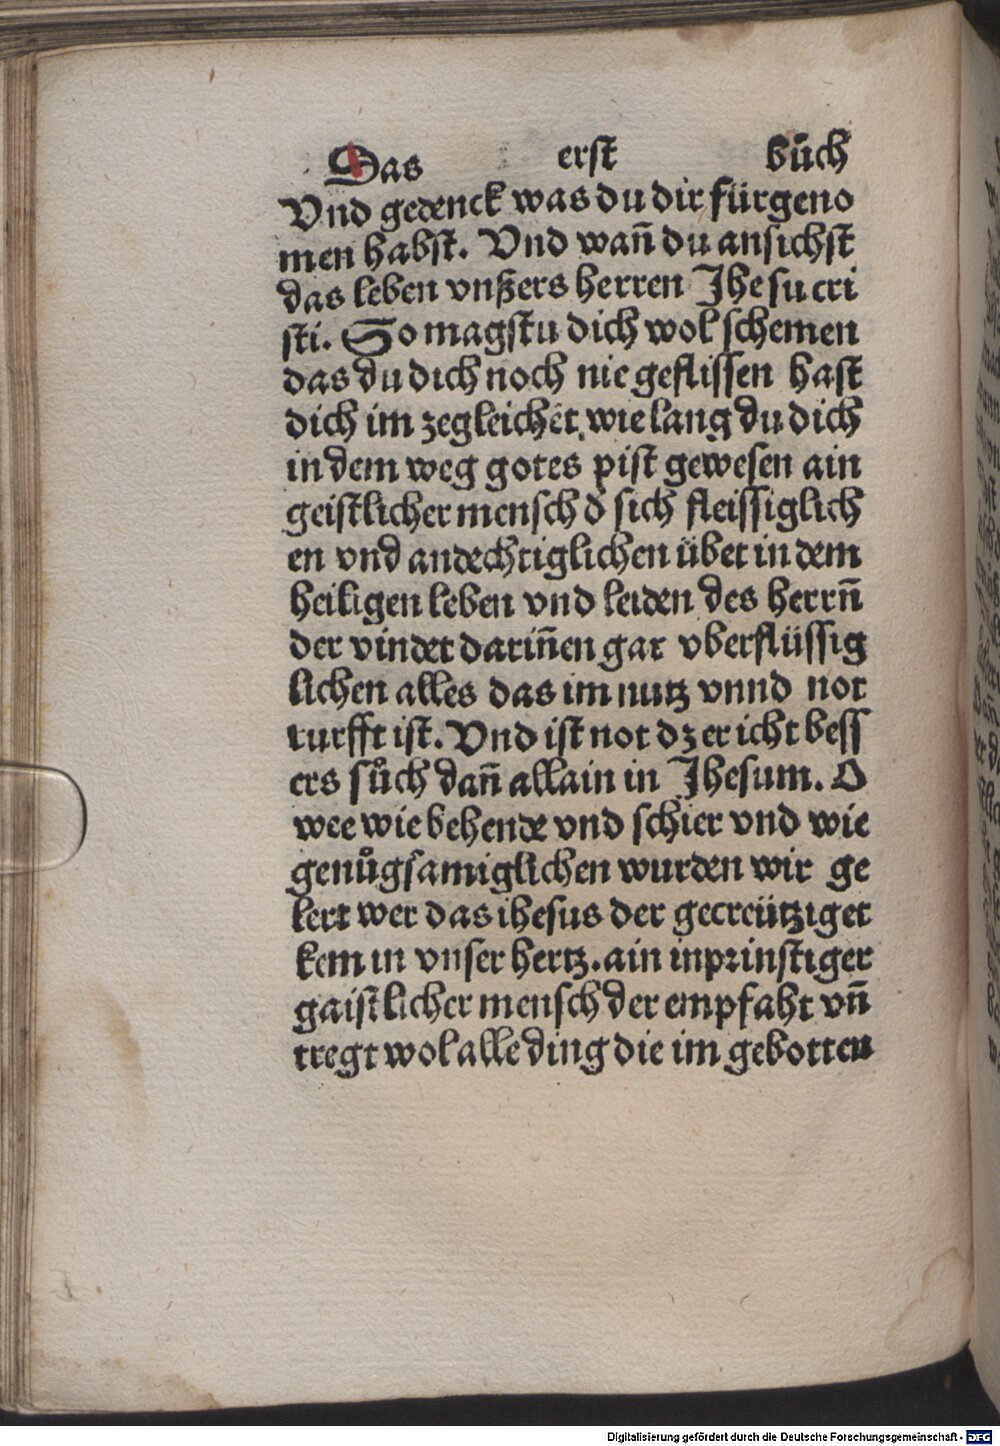 Das erst bůch
Vnd gedenck was du dir fürgeno
men habst. Vnd wan̄ du ansichst
das leben vnßers herren Jhesu cri
sti. So magstu dich wol schemen
das du dich noch nie geflissen hast
dich im zegleichēt, wie lang du dich
in dem weg gotes pist gewesen ain
geistlicher mensch d̄ sich fleissiglich
en vnd andechtiglichen übet in dem
heiligen leben vnd leiden des herrn̄
der vindet darin̄en gar vberflüssig
lichen alles das im nutz vnnd not
turfft ist. Vnd ist not dz er icht bess
ers sůch dan̄ allain in Jhesum. O
wee wie behende vnd schier vnd wie
genůgsamiglichen wurden wir ge
lert wer das ihesus der gecreütziget
kem in vnser hertz. ain inprinstiger
gaistlicher mensch der empfaht vn̄
tregt wol alle ding die im gebotten
Digitalisierung gefördert durch die Deutsche Forschungsgemeinschaft - DFG